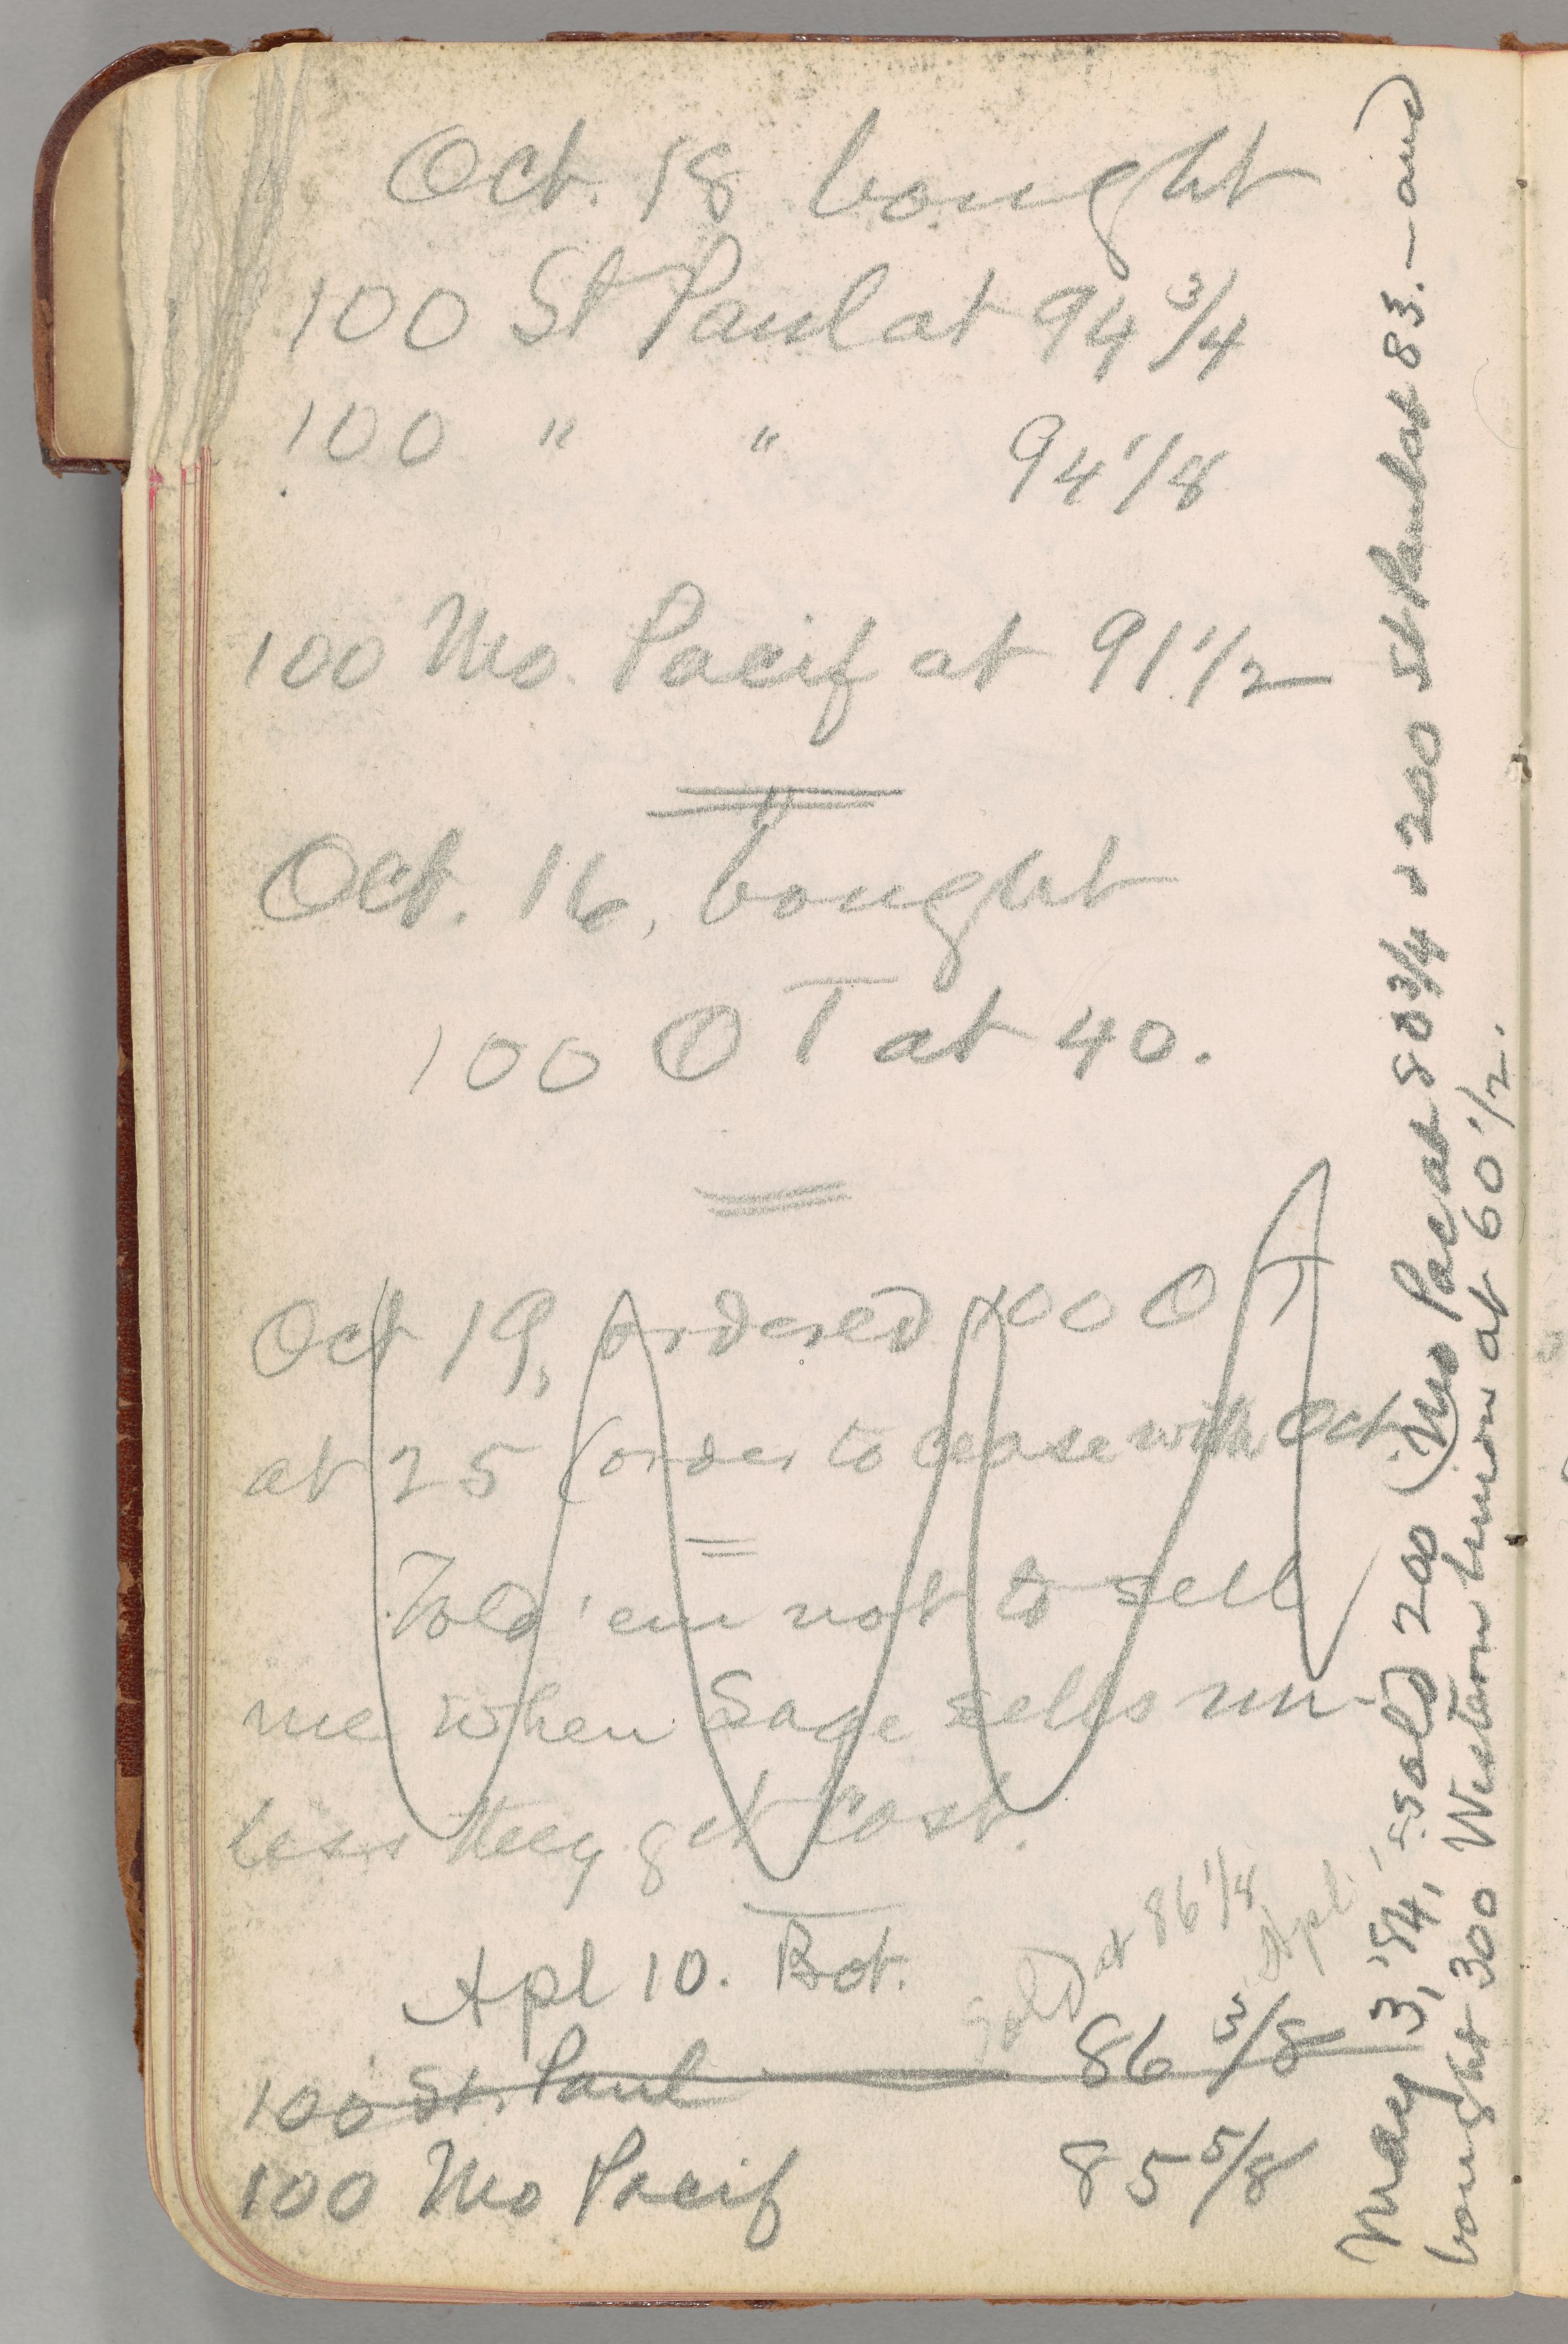 Oct. 18 bought
100 St Paul at 94 3/4
100 " " 94 1/8
100 Mo. Pacif at 91 1/2
Oct. 16, bought
100 O T at 40.
Oct 19, ordered 100 O T
at 25 (order to cease with Oct
Told 'em not to sell
me when Sage sells un-
less they get cost.
Apl 10. Bot.
sold at 86 1/8
Apl.
100 St. Paul 86 3/8
100 Mo Pacif 85 5/8
May 3, '84, sold 200 (Mo Pac at 80 3/4 & 200 St Paul at 83.—and
bought 300 Western Union at 60 1/2.